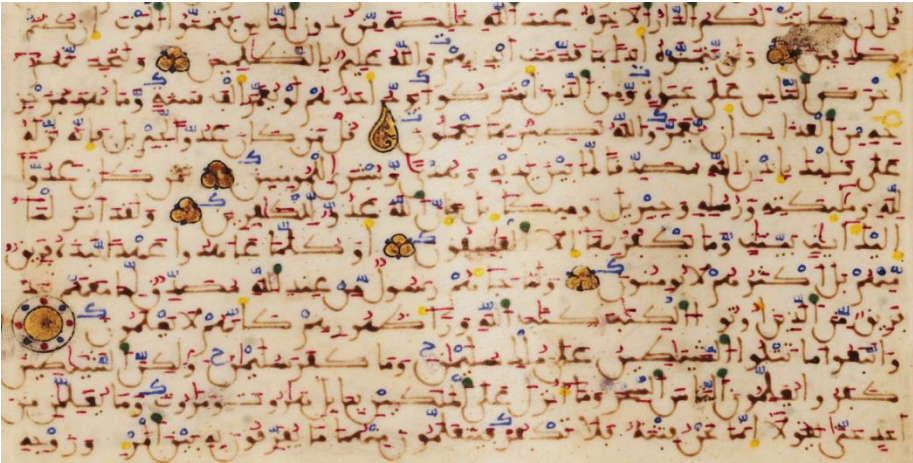 قل إن كانت لكم الدار الآخرة عند الله خالصة من دون الناس فتمنوا الموت إن كنتم
صدقين ولن يتمنوه أبدا بما قدمت أيديهم والله عليم بالظلمين ولتجدنهم
أحرص الناس على حيوة ومن الذين أشركوا يود أحدهم لو يعمر ألف سنة وما هو بمزحز
حه من العذاب أن يعمر والله بصير بما يعملون قل من كان عدوا لجبريل فإنه نزله
على قلبك بإذن الله مصدقا لما بين يديه وهدى وبشرى للمومنين من كان عدوا
لله وملئكته ورسله وجبريل وميكئل فإن الله عدو للكفرين ولقد أنزلنا
إليك ءايت بينت وما يكفر بها إلا الفسقون أو كلما عهدوا عهدا نبذه فريق
منهم بل أكثرهم لا يومنون ولما جاءهم رسول من عند الله مصدق لما معهم نبذ
فريق من الذين أوتوا الكتب كتب الله وراء ظهورهم كأنهم لا يعلمون
واتبعوا ما تتلوا الشيطين على ملك سليمن وما كفر سليمن ولكن الشيطين
كفروا يعلمون الناس السحر وما أنزل على الملكين ببابل هروت ومروت وما يعلمن من
أحد حتى يقولا إنما نحن فتنة فلا تكفر فيتعلمون منهما ما يفرقون به بين المرء وزوجه